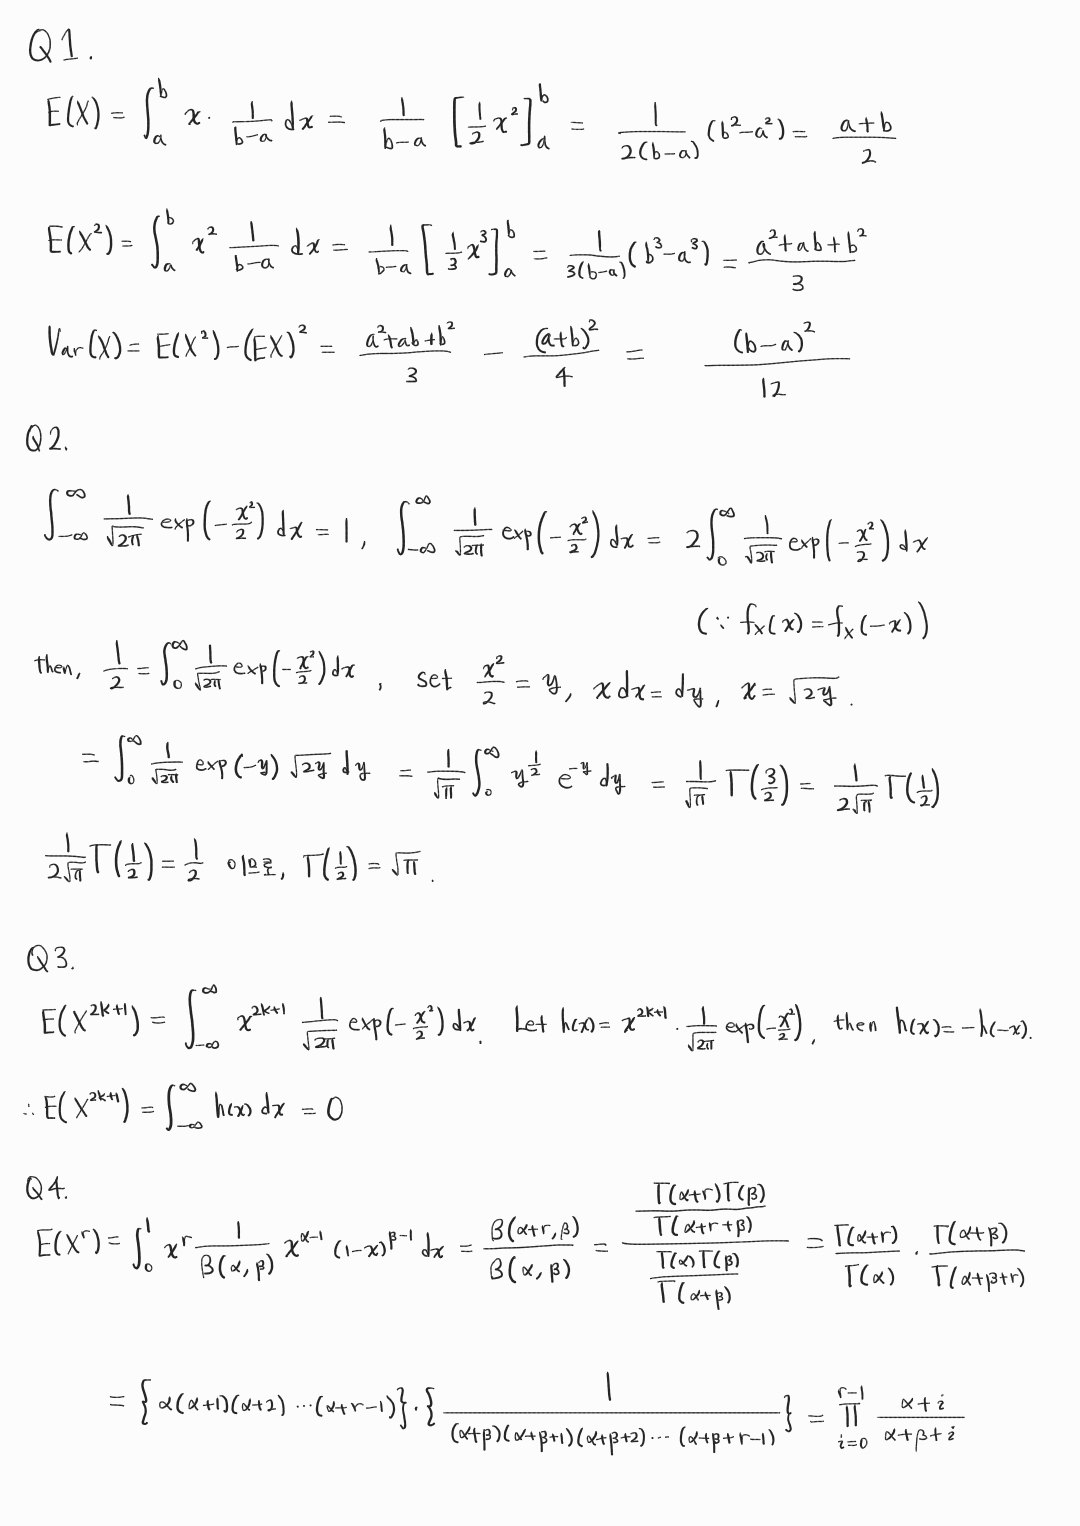 Q1.
E(X) = ∫_a^b x · \frac{1}{b-a} dx = \frac{1}{b-a} [\frac{1}{2}x²]_a^b = \frac{1}{2(b-a)} (b²-a²) = \frac{a+b}{2}
E(X²) = ∫_a^b x² \frac{1}{b-a} dx = \frac{1}{b-a} [\frac{1}{3}x³]_a^b = \frac{1}{3(b-a)} (b³-a³) = \frac{a²+ab+b²}{3}
Var(X) = E(X²)-(EX)² = \frac{a²+ab+b²}{3} - \frac{(a+b)²}{4} = \frac{(b-a)²}{12}
Q2.
∫_{-∞}^{∞} \frac{1}{\sqrt{2π}} exp(-\frac{x²}{2}) dx = 1, ∫_{-∞}^{∞} \frac{1}{\sqrt{2π}} exp(-\frac{x²}{2}) dx = 2∫_0^∞ \frac{1}{\sqrt{2π}} exp(-\frac{x²}{2}) dx
(∵ f_X(x) = f_X(-x))
then, \frac{1}{2} = ∫_0^∞ \frac{1}{\sqrt{2π}} exp(-\frac{x²}{2}) dx, set \frac{x²}{2} = y, x dx = dy, x = \sqrt{2y}.
= ∫_0^∞ \frac{1}{\sqrt{2π}} exp(-y) \sqrt{2y} dy = \frac{1}{\sqrt{π}} ∫_0^∞ y^{\frac{1}{2}} e^{-y} dy = \frac{1}{\sqrt{π}} Γ(\frac{3}{2}) = \frac{1}{2\sqrt{π}} Γ(\frac{1}{2})
\frac{1}{2\sqrt{π}} Γ(\frac{1}{2}) = \frac{1}{2} 이므로, Γ(\frac{1}{2}) = \sqrt{π}.
Q3.
E(X^{2k+1}) = ∫_{-∞}^{∞} x^{2k+1} \frac{1}{\sqrt{2π}} exp(-\frac{x²}{2}) dx. Let h(x) = x^{2k+1} · \frac{1}{\sqrt{2π}} exp(-\frac{x²}{2}), then h(x) = -h(-x).
∴ E(X^{2k+1}) = ∫_{-∞}^{∞} h(x) dx = 0
Q4.
E(X^r) = ∫_0^1 x^r \frac{1}{B(α,β)} x^{α-1} (1-x)^{β-1} dx = \frac{B(α+r,β)}{B(α,β)} = \frac{\frac{Γ(α+r)Γ(β)}{Γ(α+r+β)}}{\frac{Γ(α)Γ(β)}{Γ(α+β)}} = \frac{Γ(α+r)}{Γ(α)} · \frac{Γ(α+β)}{Γ(α+β+r)}
= {α(α+1)(α+2) ⋯ (α+r-1)} · {\frac{1}{(α+β)(α+β+1)(α+β+2) ⋯ (α+β+r-1)}} = ∏_{i=0}^{r-1} \frac{α+i}{α+β+i}